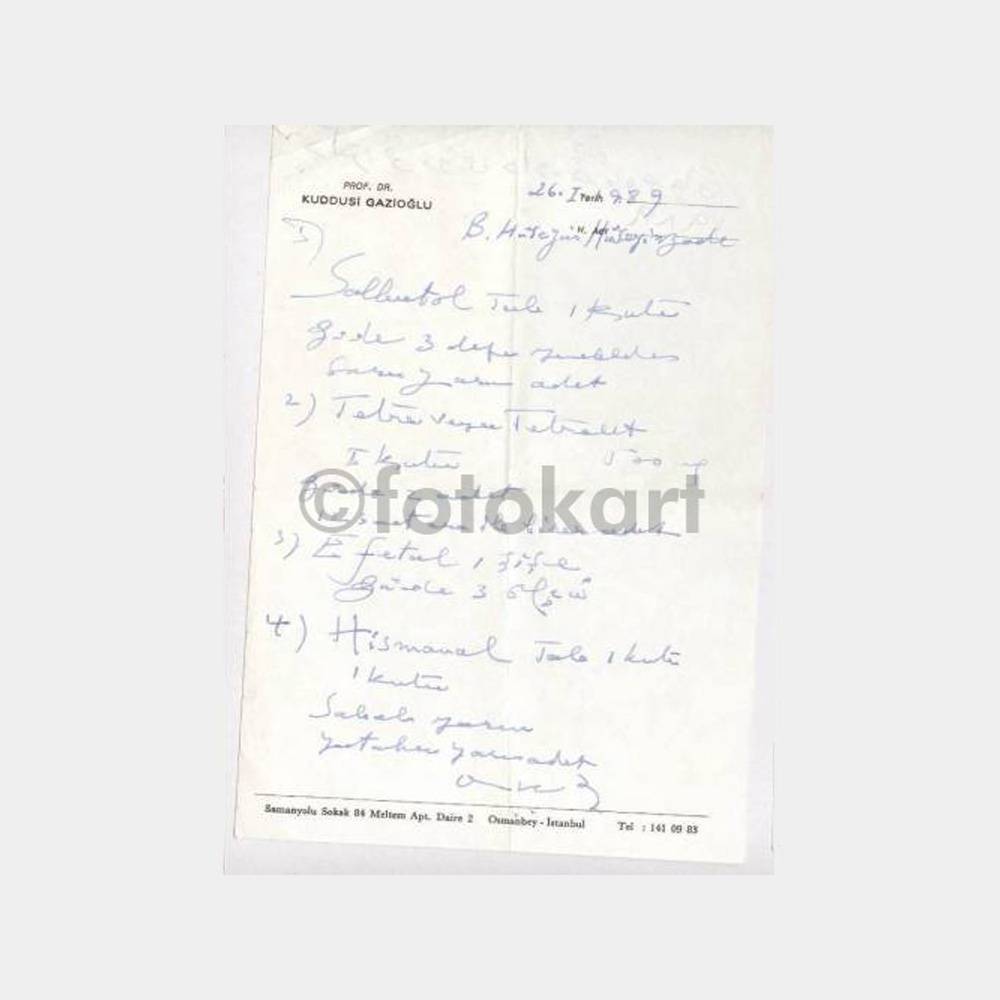 PROF. DR.
KUDDUSİ GAZİOĞLU
26. I Tarih 989
B. Hüseyin Hüseyinzade
1)
Salbutol Table 1 kutu
Günde 3 defa yemeklerden
sonra yarım adet
2) Tetra veya Tetralet
I kutu 500 mg
©fotokart
Günde adet
3) Efetal 1 şişe
Günde 3 ölçü
4) Hismanal Table 1 kutu
1 kutu
Sabah yarım
yatarken yarım adet
Samanyolu Sokak 84 Meltem Apt. Daire 2 Osmanbey - İstanbul Tel : 141 09 83